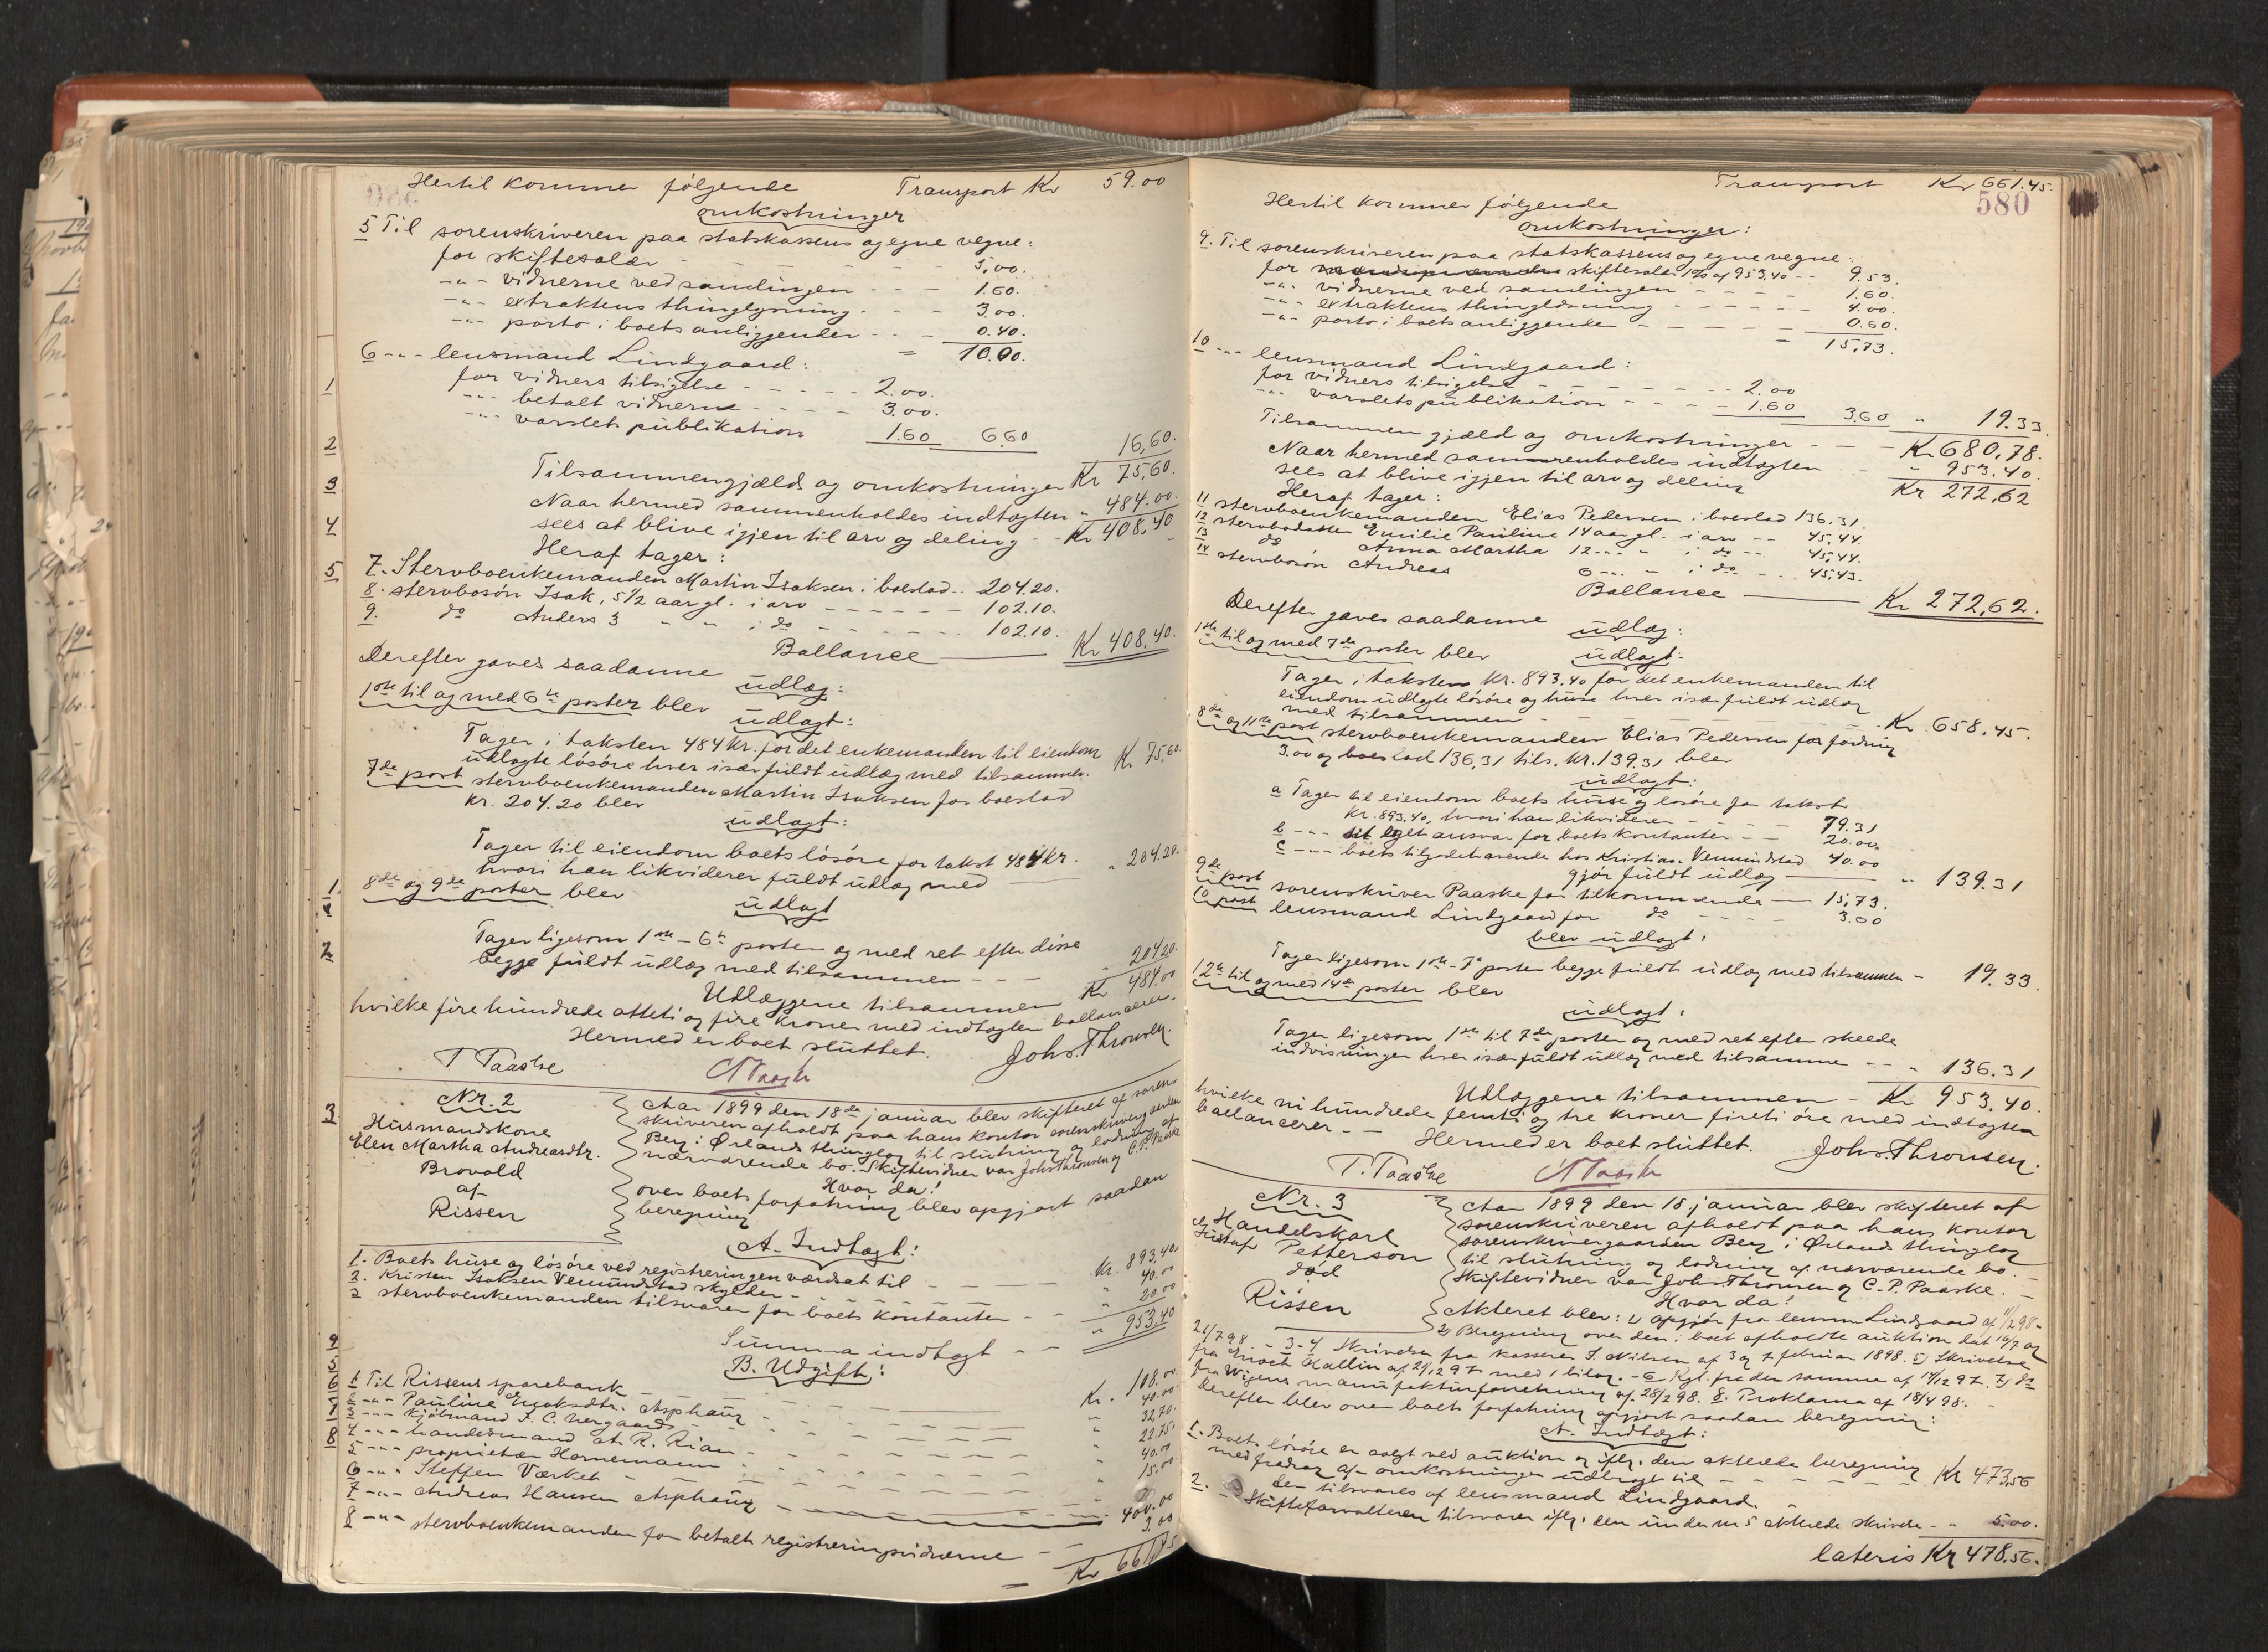 Hertil kommer følgende Transport Kr 59.00
omkostninger
5 Til sorenskriveren paa statskassens og egne vegne:
for skiftesalær - - - - - 5,00.
-"- vidnerne ved samlingen - - - 1.60.
-"- extraktens thinglysning - - - 3.00.
-"- porto i boets anliggender - - 0.40.
= 10.00.
6 -"- lensmand Lindgaard:
for vidners tilsigelse - - - - - 2.00.
-"- betalt vidnerne - - - - 3.00.
-"- varslets publikation 1.60 6.60 16,60.
Tilsammen gjæld og omkostninger Kr 75,60.
Naar hermed sammenholdes indtægten " 484.00.
sees at blive igjen til arv og deling - - Kr 408,40
Heraf tager:
7. Stervboenkemanden Martin Isaksen i boeslod.. 204.20.
8. stervbosøn Isak, 5 1/2 aar gl. i arv - - - - - 102.10.
9. do Anders 3 " " i do - - - - - 102.10.
Ballance Kr 408.40.
Derefter gaves saadanne
udlæg:
1ste til og med 6te poster blev
udlagt:
Tager i taksten 484 Kr. for det enkemanden til eiendom
udlagte løsøre hver især fuldt udlæg med tilsammen. Kr 75,60.
7de post stervboenkemanden Martin Isaksen for boeslod
Kr. 204.20 blev
udlagt:
Tager til eiendom boets løsøre for takst 484 Kr.
hvori han likviderer fuldt udlæg med " 204.20.
8de og 9de poster blev
udlagt
Tager ligesom 1ste - 6te poster og med ret efter disse
begge fuldt udlæg med tilsammen - - - 204.20.
Udlæggene tilsammen Kr 484.00
hvilke fire hundrede otteti og fire kroner med indtægten ballancerer.
Hermed er boet sluttet.
T. Paaske Johs. Thronsen.
Nr. 2
Husmandskone
Elen Martha Andreasdtr.
Brovold
af
Rissen
Aar 1899 den 18de januar blev skifteret af soren-
skriveren afholdt paa hans kontor sorenskrivergaarden
Berg i Ørlands thinglag til slutning og lodning af
nærværende bo. Skiftevidner var Johs Thronsen og C. P. Paaske
Hvor da!
over boets forfatning blev opgjort saadan
beregning
A. Indtægt:
1. Boets huse og løsøre ved registreringen værdsat til - - - Kr. 893,40.
2. Kristen Isaksen Vemundstad skylder - - - - - " 40.00
3 stervboenkemanden tilsvarer for boets kontanter - - " 20.00
Summa indtægt - - " 953,40
B. Udgift:
1 Til Rissens sparebank - - - Kr. 108.00
2 -"- Pauline Enoksdtr. Asphaug - - - " 40.00
3 -"- kjøbmand J. C. Nergaards - - - " 32,70.
4 -"- handelsmand O. R. Rian - - - " 22.75
5 -"- proprietær Hornemann - - - " 40.00
6 -"- Steffen Værket - - - " 15.00
7 -"- Andreas Hansen Asphaug - - - 400.00
8 -"- stervboenkemanden for betalt registreringsvidnerne - - 3.00
= Kr 661,45
Transport Kr 661.45.
580
Hertil kommer følgende
omkostninger:
9. Til sorenskriveren paa statskassens og egne vegne:
for skiftesalær 1% af 953,40 -- 9.53.
-"- vidnerne ved samlingen - - - 1.60.
-"- extraktens thinglæsning - - - 4.00.
-"- porto i boets anliggender - - - 0.60.
= 15,73.
10 -"- lensmand Lindgaard:
for vidners tilsigelse - - - - - 2.00
-"- varslets publikation - - - 1.60 3.60 " 19.33
Tilsammen gjæld og omkostninger - - - Kr 680,78.
Naar hermed sammenholdes indtægten - - " 953.40.
sees at blive igjen til arv og deling Kr 272,62
Heraf tager:
11 stervboenkemanden Elias Pedersen i boeslod 136.31.
12 stervbodatter Emilie Pauline 14 aar gl. i arv -- 45,44.
13 do Anna Martha 12 -"- " i do -- 45,44.
14 stervbosøn Andreas 6 -"- " i do -- 45,43.
Ballance Kr 272,62.
Derefter gaves saadanne
udlæg:
1ste til og med 7de poster blev
udlagt:
Tager i taksten Kr. 893.40 for det enkemanden til
eiendom udlagte løsøre og huse hver især fuldt udlæg
med tilsammen - - - Kr 658,45.
8de og 11te post stervboenkemanden Elias Pedersen for fordring
3.00 og boeslod 136,31 tils. Kr. 139.31 blev
udlagt:
a Tager til eiendom boets huse og løsøre for takst
Kr. 893.40, hvori han likviderer - - - 79.31
b -"- eget ansvar for boets kontanter - - 20.00
c -"- boets tilgodehavende hos Kristian Vemundstad 40.00
gjør fuldt udlæg " 139.31
9de post sorenskriver Paaske for tilkommende — 15,73.
10 post lensmand Lindgaard for do - - - 3.60
blev udlagt:
Tager ligesom 1ste - 7de poster begge fuldt udlæg med tilsammen - 19.33.
12te til og med 14de poster blev
udlagt:
Tager ligesom 1ste til 7de poster og med ret efter skeede
indvisninger hver især fuldt udlæg med tilsamme - - " 136.31
Udlæggene tilsammen - Kr 953,40.
hvilke ni hundrede femti og tre kroner firti øre med indtægten
ballancerer. - Hermed er boet sluttet. Johs. Thronsen.
T. Paaske
Nr. 3
Handelskarl
Gustaf Petterson
død
Rissen
Aar 1899 den 18. januar blev skifteret af
sorenskriveren afholdt paa hans kontor
sorenskrivergaarden Berg i Ørlands thinglag
til slutning og lodning af nærværende bo. -
Skiftevidner var Johs Thronsen og C. P. Paaske. -
Hvor da!
Akteret blev: 1) opgjør fra lensm Lindgaard af 11/2 98 -
2) Beregning over den i boet afholdte auktion dat 10/7 og
21/7 98. - 3-4 Skrivelser fra kasserer J. Nilsen af 3 og 7 februar 1898. 5) Skrivelse
fra Enoch Hallin af 21/12 97 med 1 bilag. - 6 Rgl. fra den samme af 14/12 97. 7) do
fra Wigens manufakturforretning af 28/2 98. 8. Proklama af 18/4 98. -
Derefter blev over boets forfatning opgjort saadan beregning:
A. Indtægt:
1. Boets løsøre er solgt ved auktion og iflg. den akterede beregning
med fradrag af omkostninger udbragt til - - - Kr 473,56
den tilsvares af lensmand Lindgaard.
2. Skifteforvalteren tilsvarer iflg. den under no 5 akterede skrivelse - " 5.00.
lateris Kr 478,56.